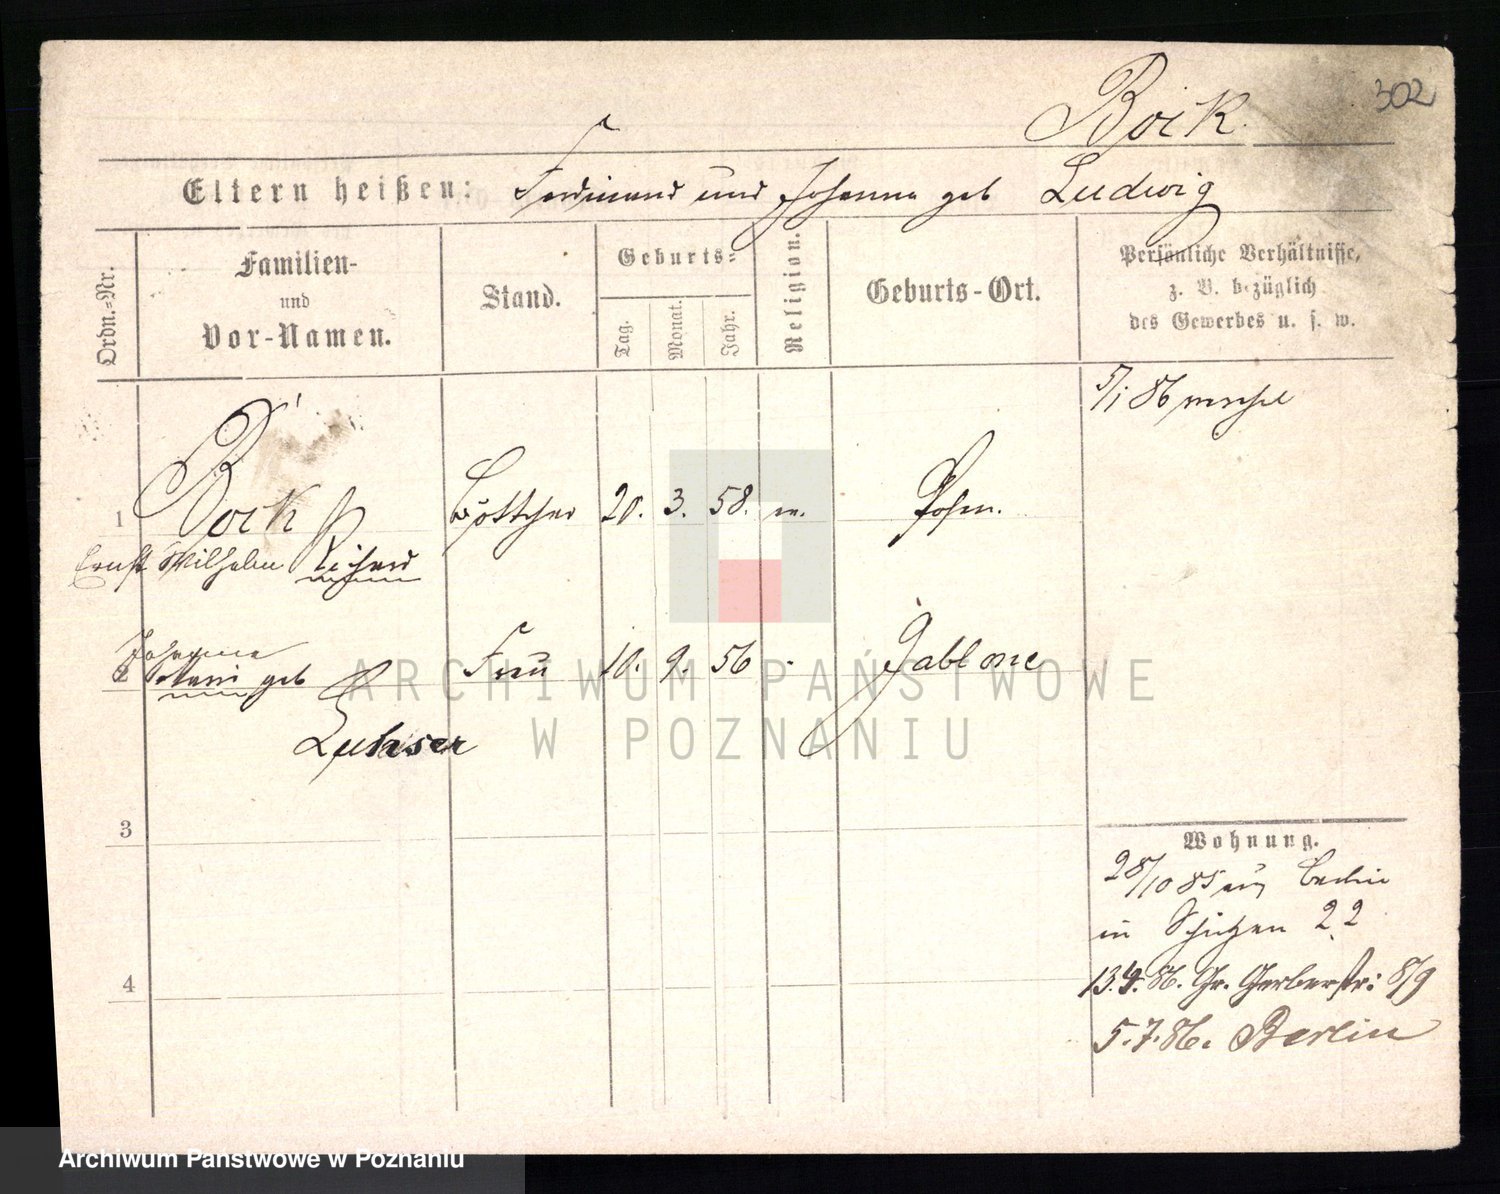 302
Bock
Eltern heißen: Ferdinand und Johanna geb Ludwig
Ordn.-Nr.
Familien-
und
Vor-Namen.
Stand.
Geburts-
Tag.
Monat.
Jahr.
Religion.
Geburts-Ort.
Persönliche Verhältnisse,
z. B. bezüglich
des Gewerbes u. s. w.
5/1 86
1 Bock Böttcher 20. 3. 58. Posen.
Ernst Wilhelm Richard
Johanna
2 Marie geb Frau 10. 9. 56 Jablone
3
4
Wohnung.
28/10 85 Berlin
in Schützen 22
13.4.86. Gr. Gerberstr: 8/9
5.7.86. Berlin
ARCHIWUM PAŃSTWOWE
W POZNANIU
Archiwum Państwowe w Poznaniu